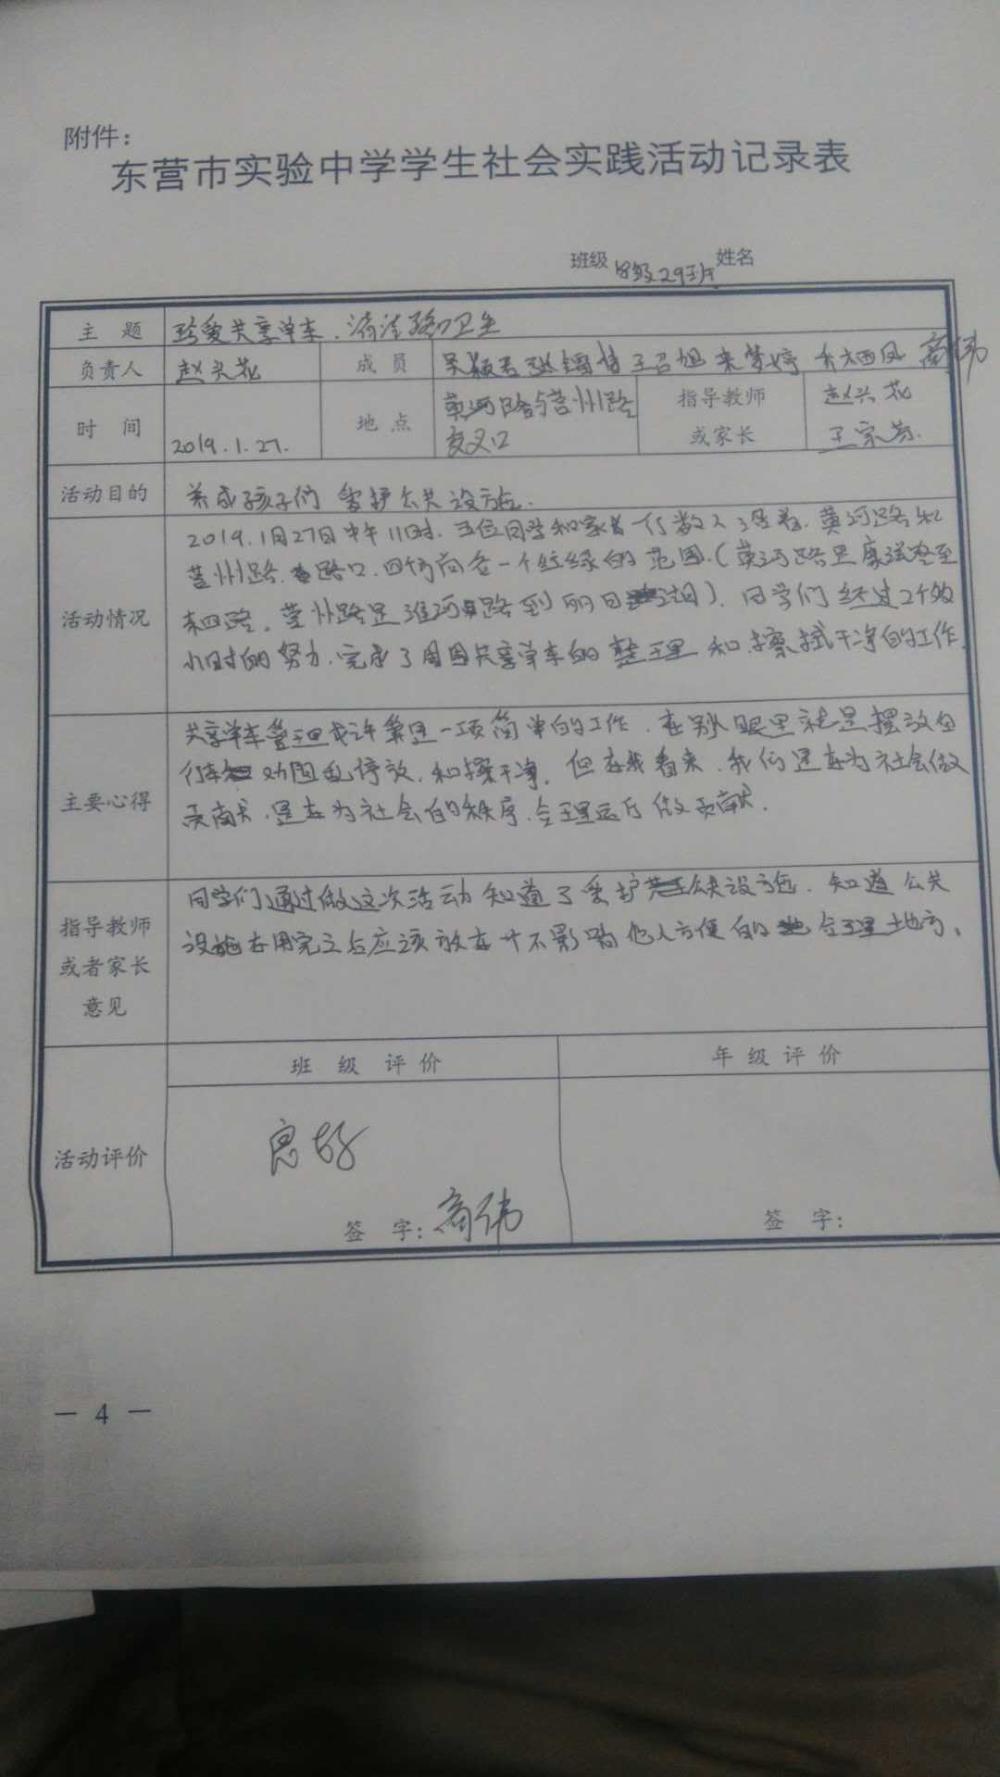 附件：
东营市实验中学学生社会实践活动记录表
班级 8级29班 姓名
主 题 珍爱共享单车，清洁 卫生
负责人 赵兴花 成 员 吴颖 王召旭 来梦婷 商伟
时 间 2019.1.27. 地 点 黄河路与莒州路 指导教师 赵兴花
交叉口 或家长 王宗芳.
活动目的 养成孩子们 爱护公共设施.
活动情况 2019.1月27日中午11时. 五位同学和家长一行数人 黄河路和
莒州路 路口. 四个方向各一个红绿的范围.（黄河路是康洋至
莒州路是淮河路到 湖）. 同学们经过2个故
小时的努力. 完成了周围共享单车的整理和擦拭干净的工作.
主要心得 共享单车整理或许算是一项简单的工作. 在别眼里就是摆放自
行车 乱停放. 和擦干净. 但在我看来. 我们是在为社会做
贡献. 是在为社会的秩序. 合理运行做贡献.
指导教师
或者家长
意见
同学们通过做这次活动知道了爱护公共设施. 知道公共
设施在用完之后应该放在 不影响他人方便的 合理地方。
班 级 评价 年 级 评 价
活动评价 良好
签 字：商伟 签 字：
— 4 —